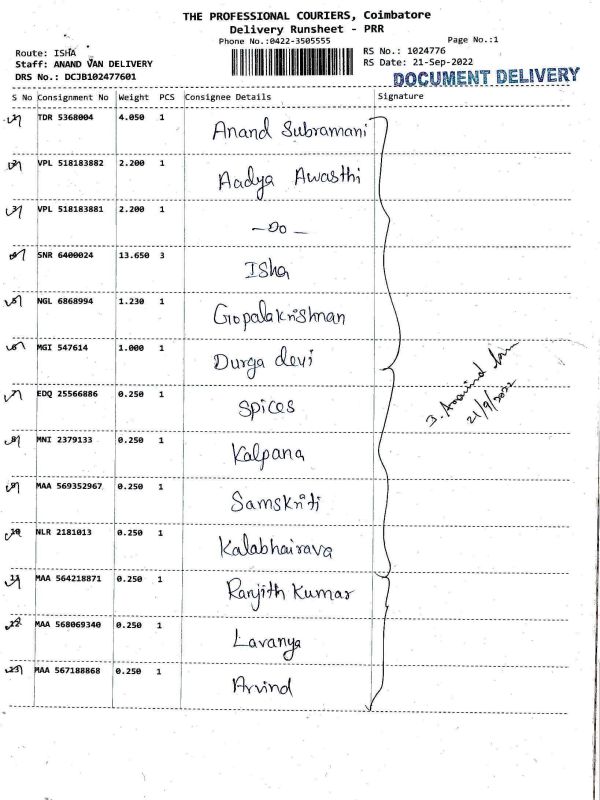 THE PROFESSIONAL COURIERS, Coimbatore
Delivery Runsheet - PRR
Phone No.:0422-3505555
Page No.:1
Route: ISHA
RS No.: 1024776
Staff: ANAND VAN DELIVERY
RS Date: 21-Sep-2022
DRS No.: DCJB102477601
DOCUMENT DELIVERY
S No Consignment No Weight PCS Consignee Details Signature
1 TDR 5368004 4.050 1 Anand Subramani
2 VPL 518183882 2.200 1 Aadya Awasthi
3 VPL 518183881 2.200 1 -Do-
4 SNR 6400024 13.650 3 Isha
5 NGL 6868994 1.230 1 Gopalakrishnan
6 MGI 547614 1.000 1 Durga devi
7 EDQ 25566886 0.250 1 Spices
8 MNI 2379133 0.250 1 Kalpana
9 MAA 569352967 0.250 1 Samskriti
10 NLR 2181013 0.250 1 Kalabhairava
11 MAA 564218871 0.250 1 Ranjith Kumar
12 MAA 568069340 0.250 1 Lavanya
13 MAA 567188868 0.250 1 Arvind
21/9/2022